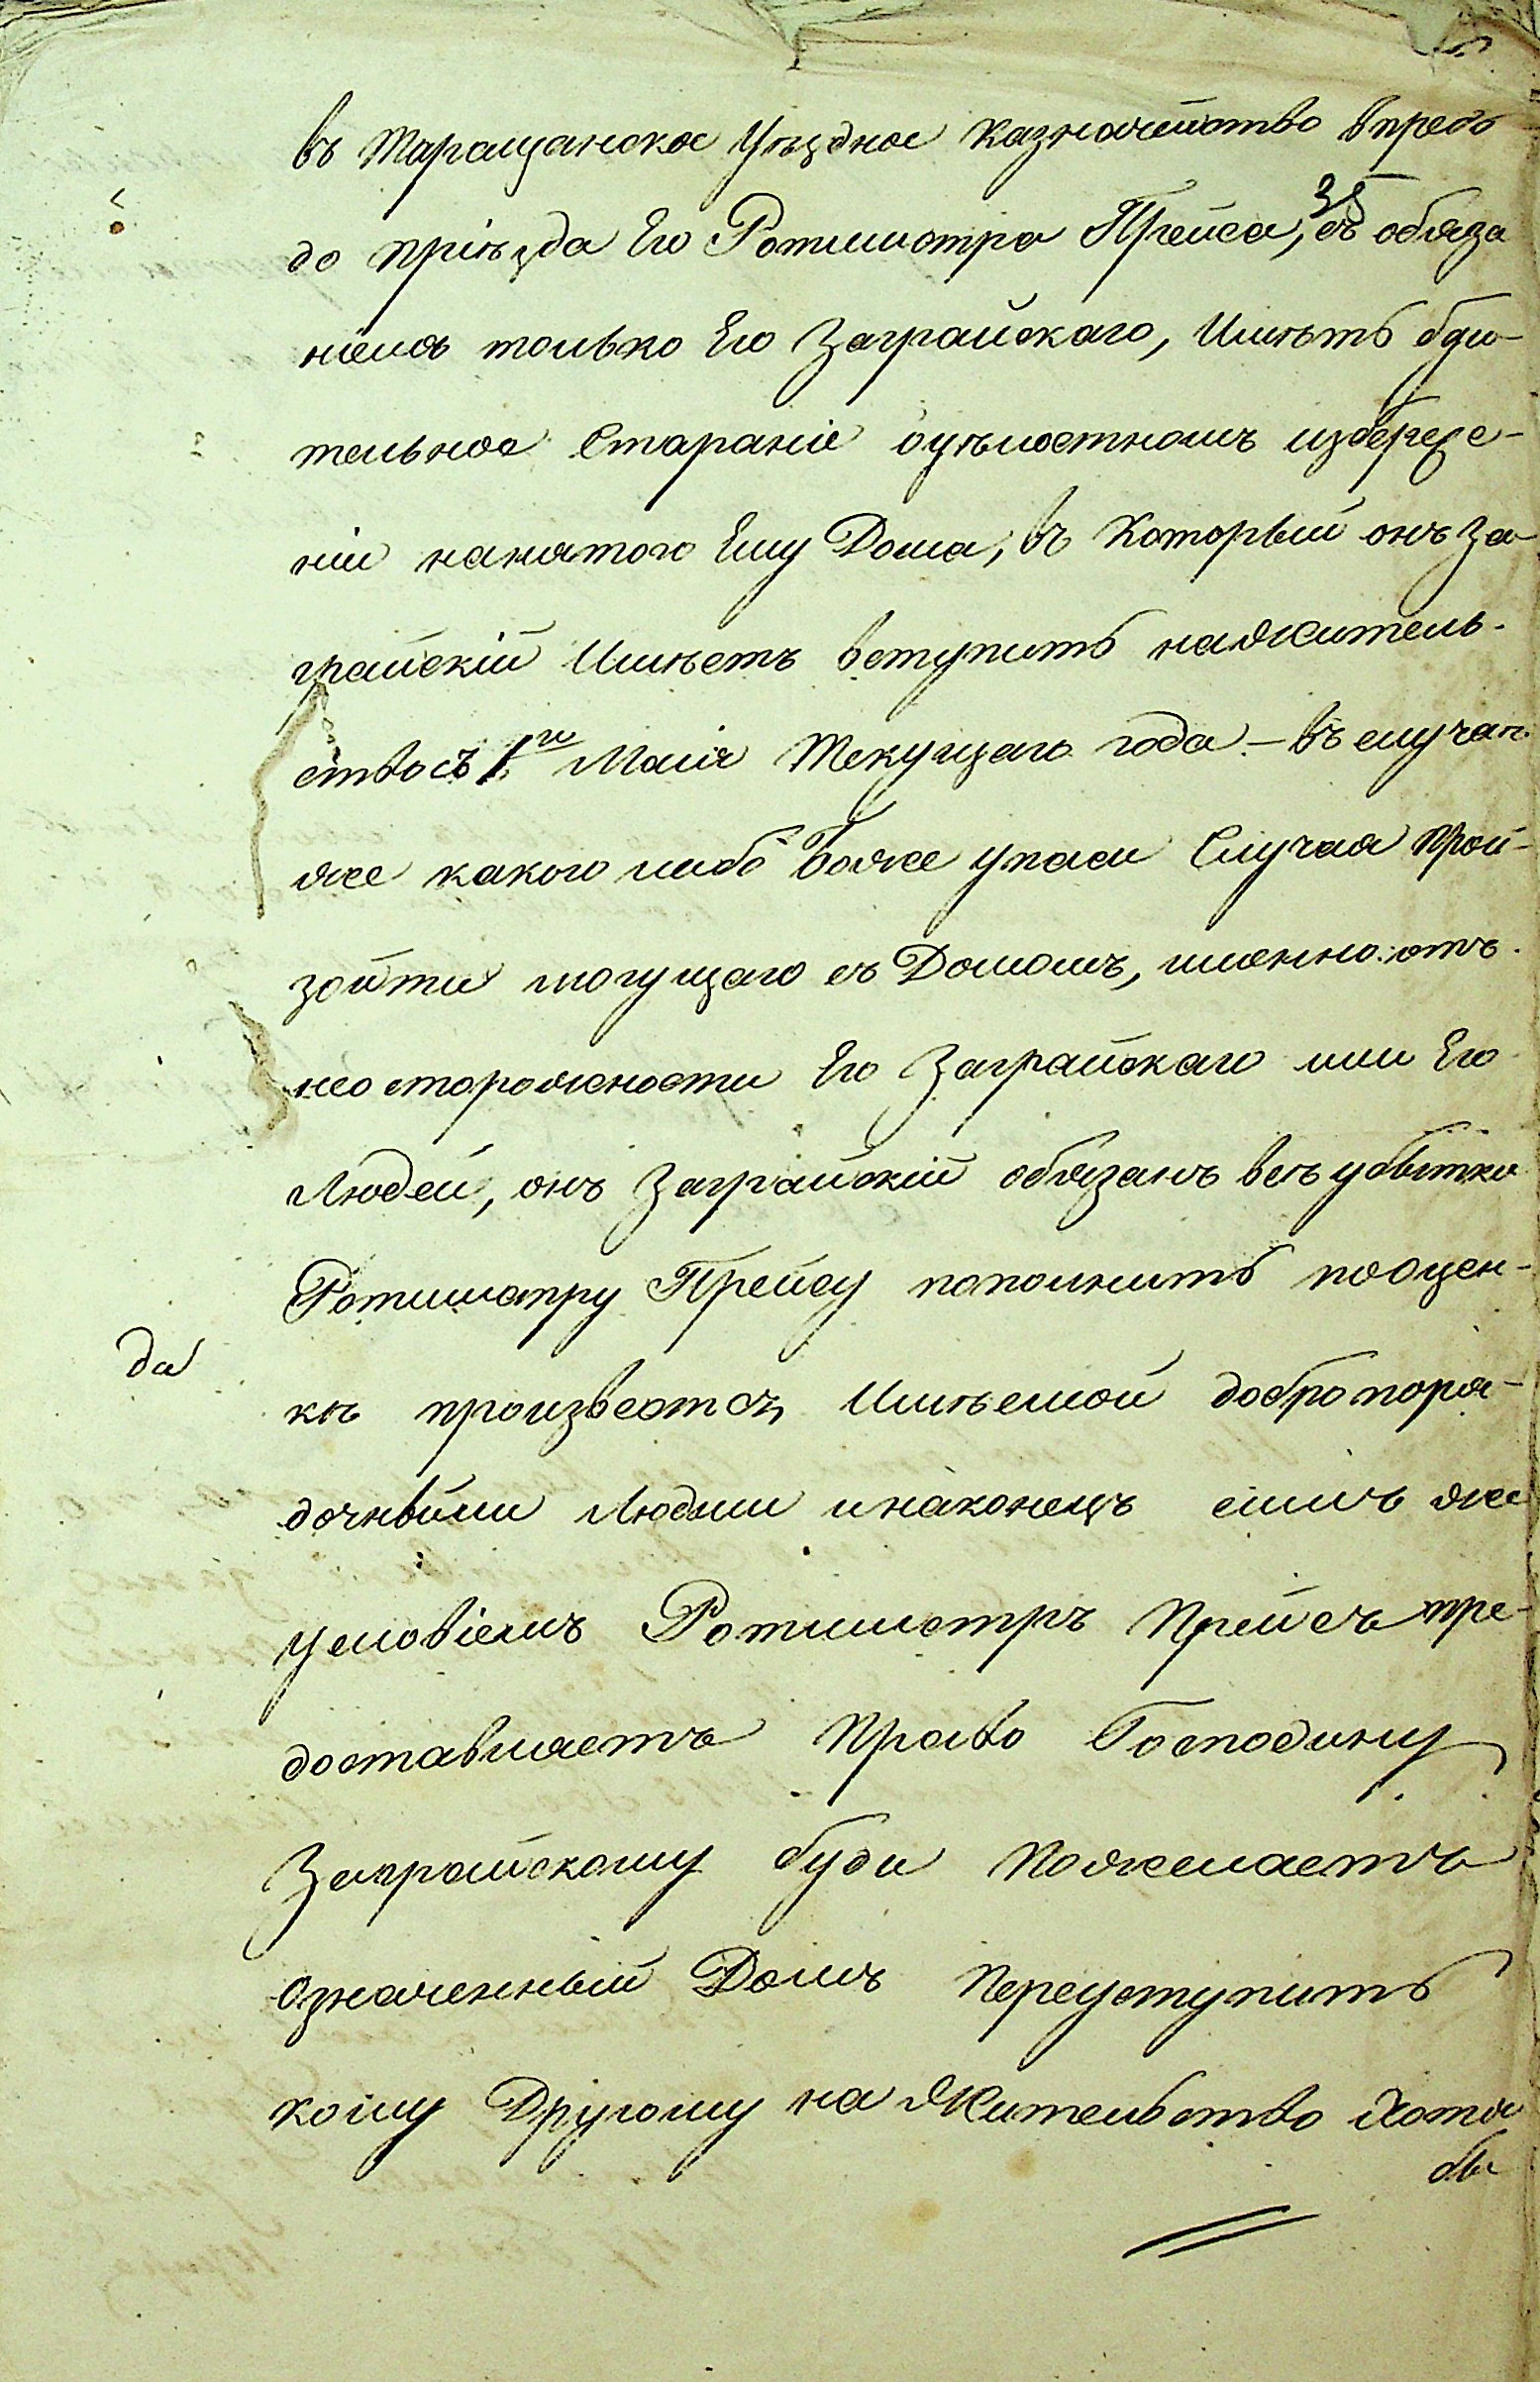 въ Таращанское Уѣздное Казначейство впредь
35
до пріѣзда Его Ротмистра Прейса, съ обяза
ніемъ только Его Заграйскаго, Имѣть бди-
тельное Стараніе оцѣлостномъ избереже-
ніи нанятого Ему Дома, въ Который онъ За
грайскій Имѣетъ вступить нажитель-
ство съ 1го Маія Текущаго года – въ случаѣ
же какого либо Боже упаси Случая прои-
зойти могущаго съ Домомъ, именно: отъ
неосторожности Его Заграйскаго или Его
Людей, онъ Заграйскій обязанъ всѣ убытки
Ротмистру Прейсу пополнить пооцен-
да
кѣ произвестъсь Имѣемой добропоря-
дочными Людьми инаконецъ симъ же
условіемъ Ротмистръ Прейсъ пре-
доставляетъ право Господину
Заграйскому буди пожелаетъ
Означенный Домъ Переуступить
кому Другому на Жительство хотя
бы